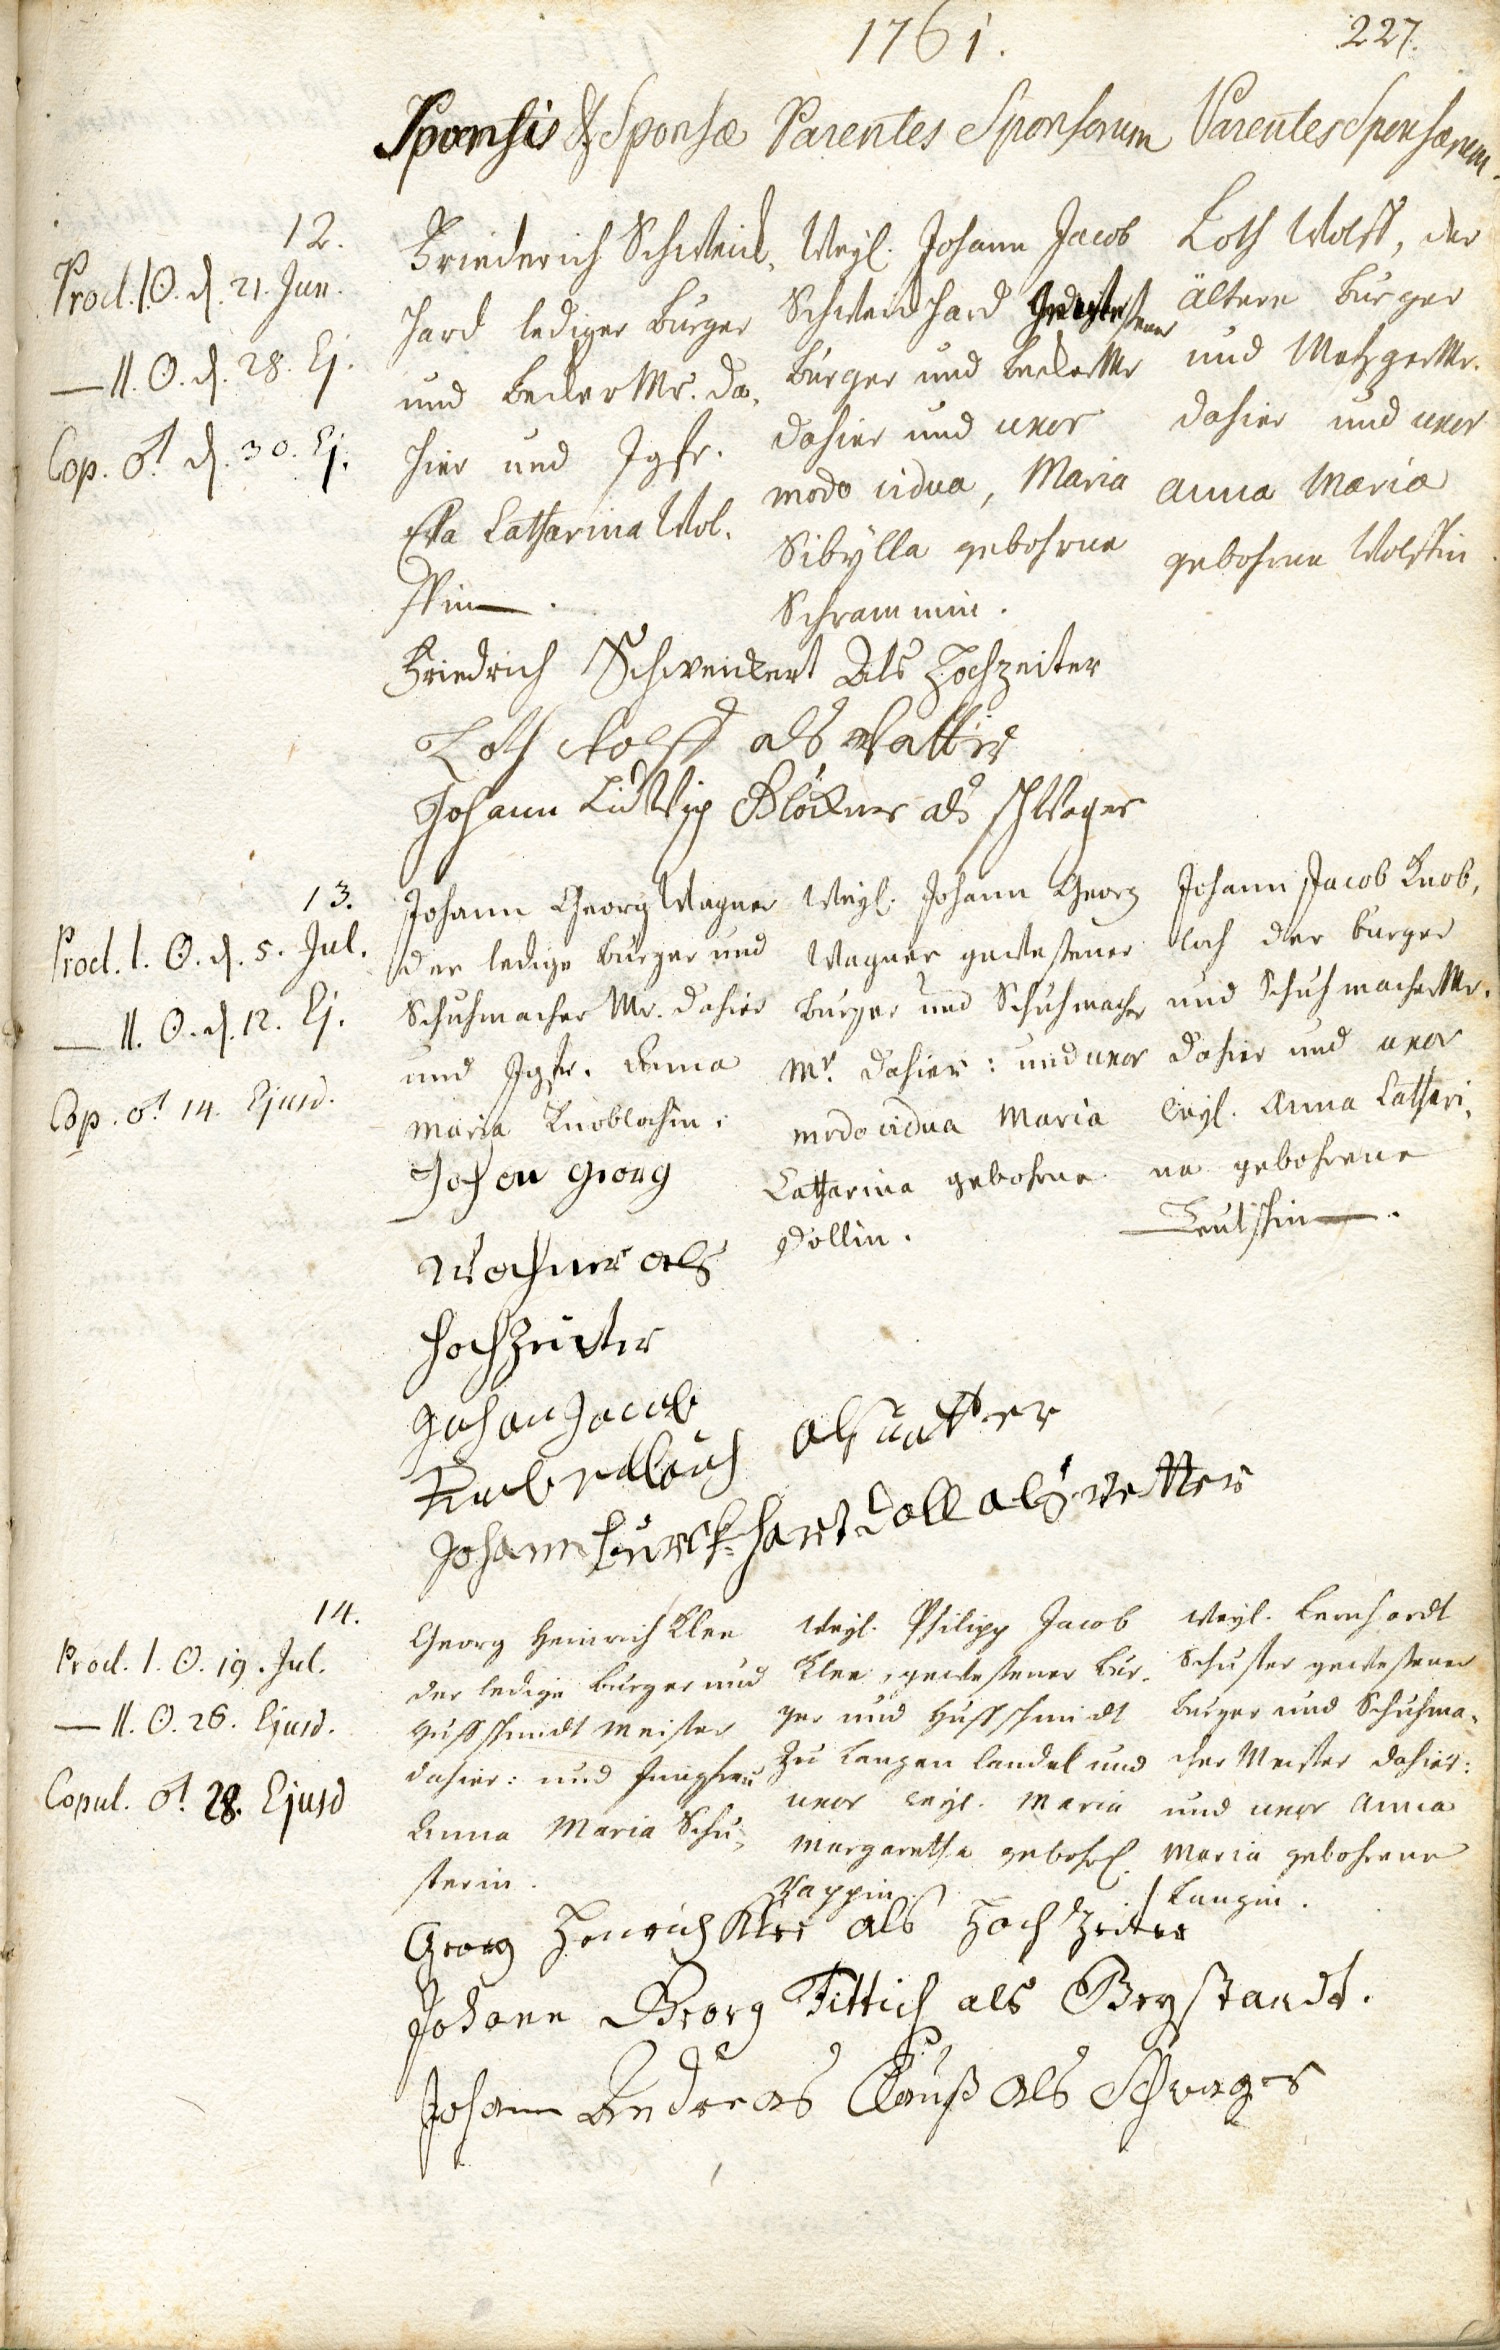 1761.
227.
Sponsis & Sponsæ Parentes Sponsorum Parentes Sponsarum.
12.
Procl. I. ☉. d. 21. Jun.
— II. ☉. d. 28. Ej.
Cop. ♂ d. 30. Ej.
Friederich Schweick-
hard lediger Burger
und Becker Mr. da-
hier und Jgfr.
Eva Catharina Wol-
ffin.
Weyl. Johann Jacob
Schweickhard gewesener
Burger und Becker Mr
dahier und uxor
modo vidua, Maria
Sibÿlla gebohrne
Schrammin.
Loth Wolff, der
ältere Burger
und Metzger Mr.
dahier und uxor
Anna Maria
gebohrne Wolffin
Friedrich Schweickert Als Hochzeiter
Loth Wolff als Vatter
Johann Ludwig Glöckner als schwager
13.
Procl. I. ☉. d. 5. Jul.
— II. ☉. d. 12. Ej.
Cop. ♂ 14. Ejusd.
Johann Georg Wagner
der ledige Burger und
Schuhmacher Mr. dahier
und Jgfr. Anna
Maria Knoblochin.
Weyl. Johann Georg
Wagner gewesener
Burger und Schuhmacher
Mr. dahier: und uxor
modo vidua Maria
Catharina gebohrne
Döllin.
Johann Jacob Knob-
loch der Burger
und Schuhmacher Mr.
dahier und uxor
Weyl. Anna Cathari-
na gebohrene
Johan Georg
Wachner als
Hochzeiter
Johan Jacob
als vatter
Johann Burckhart Doll als vetter
14.
Procl. I. ☉. 19. Jul.
— II. ☉. 26. Ejusd.
Copul. ♂ 28. Ejusd
Georg Heinrich Klee
der ledige Burger und
Huffschmidt Meister
dahier: und Jungfrau
Anna Maria Schu-
sterin.
Weyl. Philipp Jacob
Klee, gewesener Bur-
ger und Huffschmidt
zu Langen Candel und
uxor weyl. Maria
Margaretha gebohrl.
Rappin
Weyl. Bernhardt
Schuster gewesener
Burger und Schuhma-
cher Meister dahier:
und uxor Anna
Maria gebohrene
Langin.
Georg Henrich Klee als Hochzeiter
Johann Georg Fittich als Beystandt.
Johann Andreas Clauß als Schwager